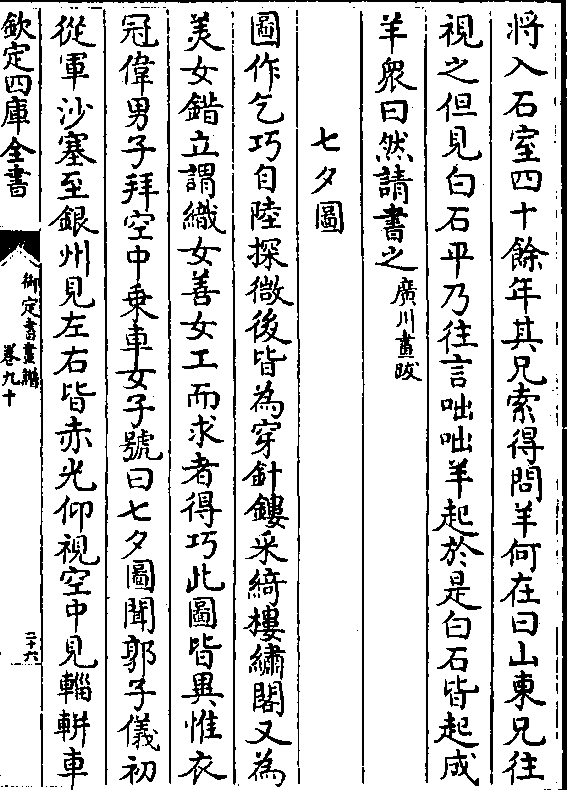 将入石室四十餘年其兄索得問羊何在曰山東兄往
視之但見白石平乃往言咄咄羊起於是白石皆起成
羊衆曰然請書之廣川畫跋
七夕圖
圖作乞巧自陸探微後皆為穿針鏤采綺樓繡閣又為
美女錯立謂織女善女工而求者得巧此圖皆異惟衣
冠偉男子拜空中乗車女子號曰七夕圖聞郭子儀初
從軍沙塞至銀州見左右皆赤光仰視空中見輜軿車
欽定四庫全書
御定書畫譜
卷九十
二十六